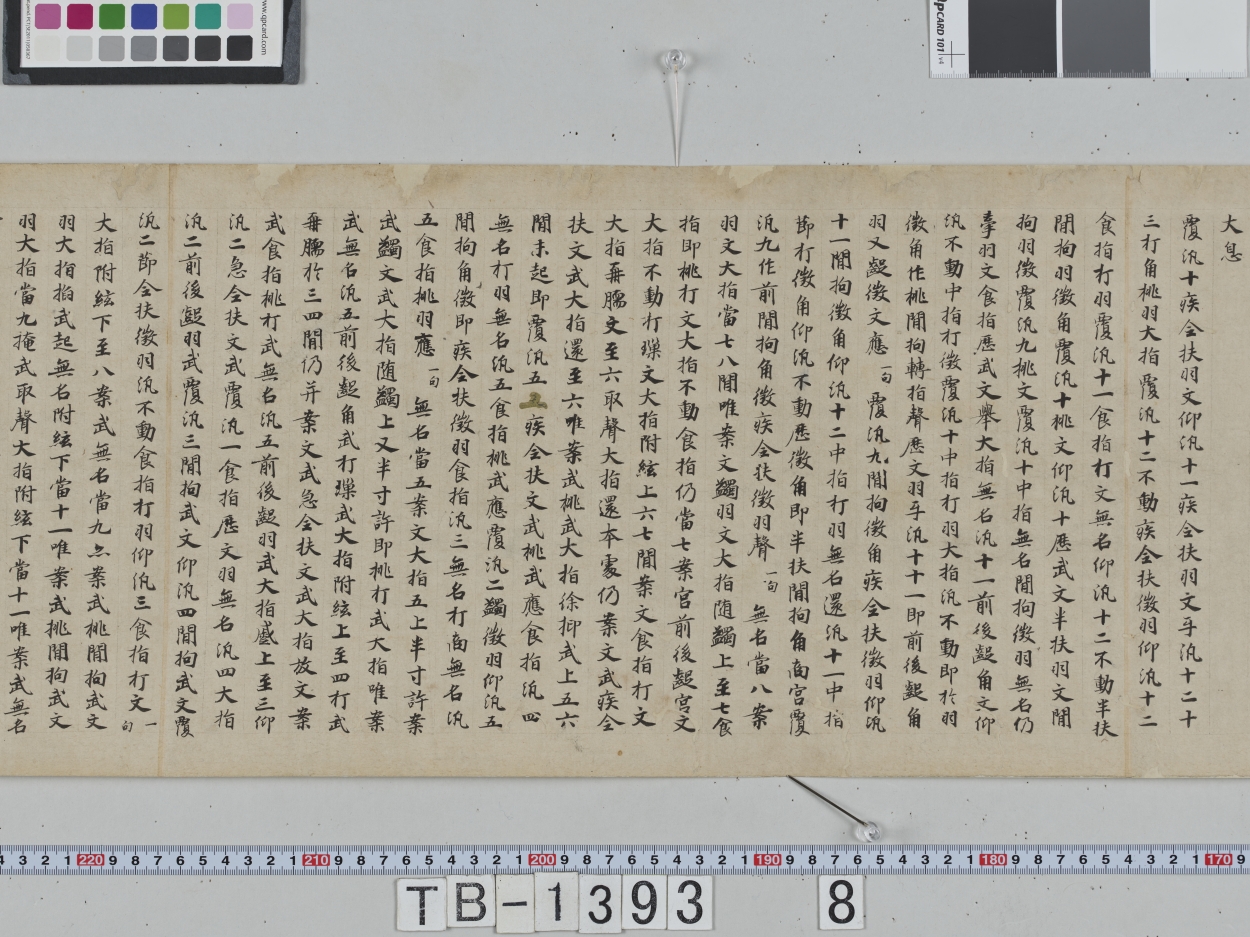 大息
覆汎十疾全扶羽文仰汎十一疾全扶羽文乎汎十二十
三打角桃羽大指覆汎十二不動疾全扶徵羽仰汎十二
食指打羽覆汎十一食指打文無名仰汎十二不動半扶
閒拘羽徵角覆汎十桃文仰汎十應武文半扶羽文閒
拘羽徵覆汎九桃文覆汎十中指無名閒拘徵羽無名仍
牽羽文食指歷武文舉大指無名汎十一前後齪角文仰
汎不動中指打徵覆汎十中指打羽大指汎不動即於羽
徵角作桃閒拘轉指聲歷文羽乎汎十十一即前後齪角
羽又齪徵文應一句覆汎九閒拘徵角疾全扶徵羽仰汎
十一閒拘徵角仰汎十二中指打羽無名還汎十一中指
節打徵角仰汎不動歷徵角即半扶閒拘角商宮覆
汎九作前閒拘角徵疾全扶徵羽聲一句無名當八案
羽文大指當七八閒唯案文蠲羽文大指隨蠲上至七食
指即桃打文大指不動食指仍當七案宮前後齪宮文
大指不動打㻮文大指附絃上六七閒案文食指打文
大指再臑文至六取聲大指還本處仍案文武疾全
扶文武大指還至六唯案武桃武大指徐抑武上五六
閒未起即覆汎五疾全扶文武桃武應食指汎四
無名打羽無名汎五食指桃武應覆汎二蠲徵羽仰汎五
閒拘角徵即疾全扶徵羽食指汎三無名打商無名汎
五食指桃羽應一句無名當五案文大指五上半寸許案
武蠲文武大指隨蠲上又半寸許即桃打武大指唯案
武無名汎五前後齪角武打㻮武大指附絃上至四打武
再臑於三四閒仍并案文武急全扶文武大指放文案
武食指桃打武無名汎五前後齪羽武大指蹙上至三仰
汎二急全扶文武覆汎一食指歷文羽無名汎四大指
汎二前後齪羽武覆汎三閒拘武文仰汎四閒拘武文覆
汎二節全扶徵羽汎不動食指打羽仰汎三食指打文一句
大指附絃下至八案武無名當九亦案武桃閒拘武文
羽大指掐武起無名附絃下當十一唯案武桃閒拘武文
羽大指當九掩武取聲大指附絃下當十一唯案武無名
www.qpcard.com
QPCARD 101 v4
4 3 2 1 220 9 8 7 6 5 4 3 2 1 210 9 8 7 6 5 4 3 2 1 200 9 8 7 6 5 4 3 2 1 190 9 8 7 6 5 4 3 2 1 180 9 8 7 6 5 4 3 2 1 170 9
TB-1393 8